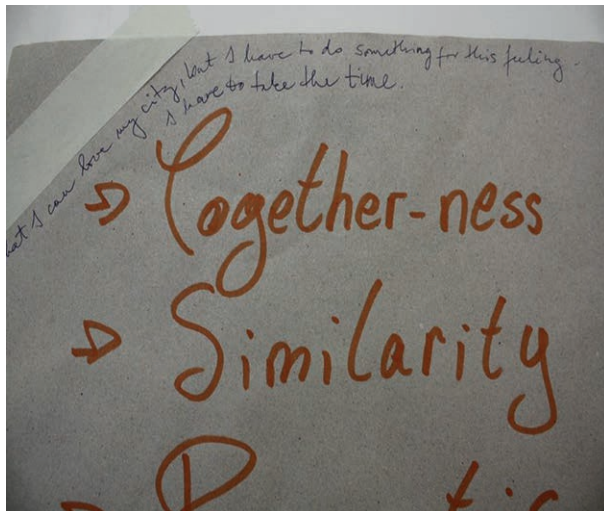 that I can love my city, but I have to do something for this feeling.
I have to take the time.
Together-ness
Similarity